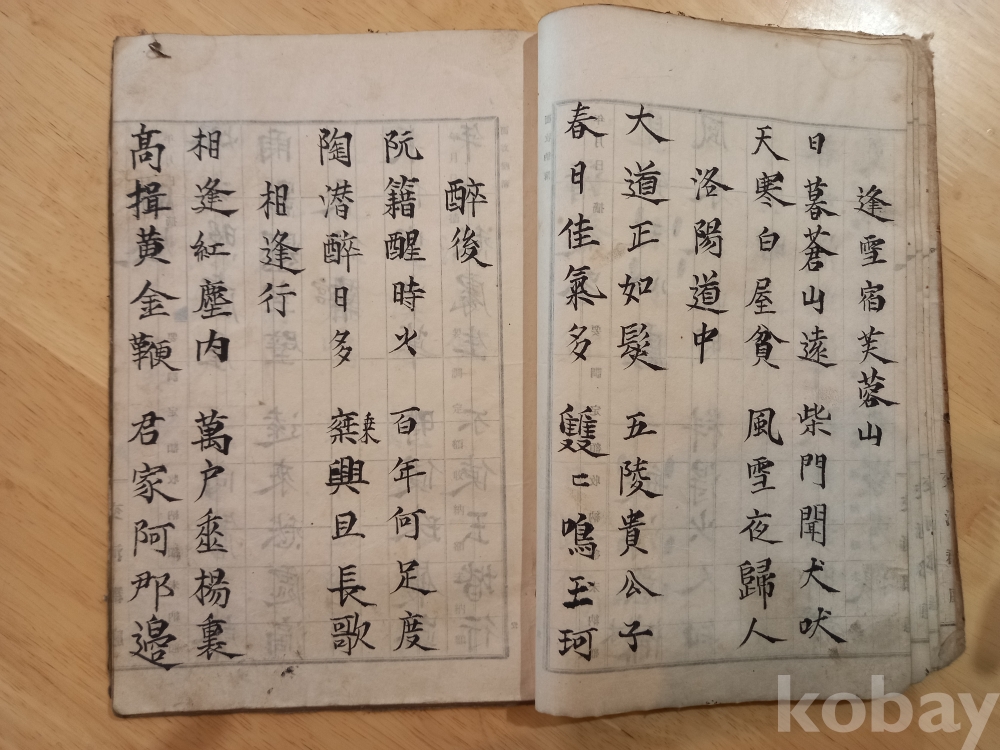 逢雪宿芙蓉山
日暮蒼山遠 柴門聞犬吠
天寒白屋貧 風雪夜歸人
洛陽道中
大道正如髮 五陵貴公子
春日佳氣多 雙〻鳴玉珂
醉後
阮籍醒時少 百年何足度
陶潜醉日多 乗興且長歌
相逢行
相逢紅塵内 萬户垂楊裏
高揖黄金鞭 君家阿那邉
kobay